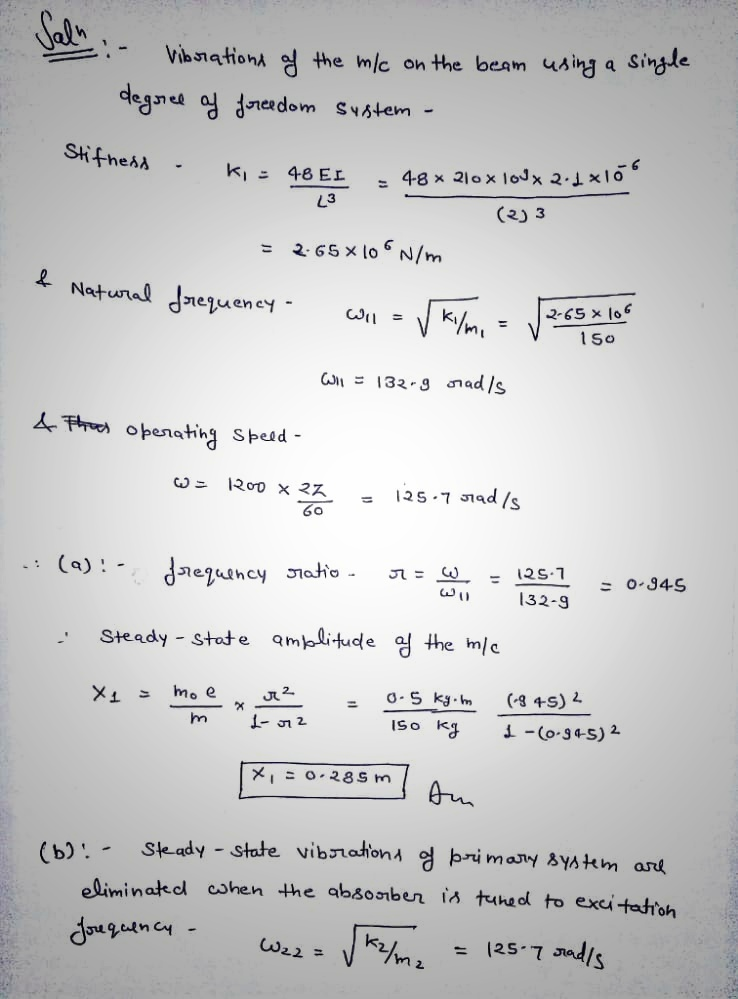 Saln :- Vibrations of the m/c on the beam using a single
degree of freedom system -
Stifness - K₁ = 48 EI / L³ = 48 × 210 × 10⁹ × 2.1 × 10⁻⁶ / (2)³
= 2.65 × 10⁶ N/m
& Natural frequency - ω₁₁ = √(K₁/m₁) = √(2.65 × 10⁶ / 150)
ω₁₁ = 132.9 rad/s
& operating speed -
ω = 1200 × 2π / 60 = 125.7 rad/s
∴ (a) :- frequency ratio - r = ω / ω₁₁ = 125.7 / 132.9 = 0.945
∴ Steady-state amplitude of the m/c
X₁ = m₀e / m × r² / 1-r² = 0.5 kg.m / 150 kg (.945)² / 1-(0.945)²
X₁ = 0.285 m Ans
(b) :- Steady-state vibrations of primary system are
eliminated when the absorber is tuned to excitation
frequency -
ω₂₂ = √(K₂/m₂) = 125.7 rad/s